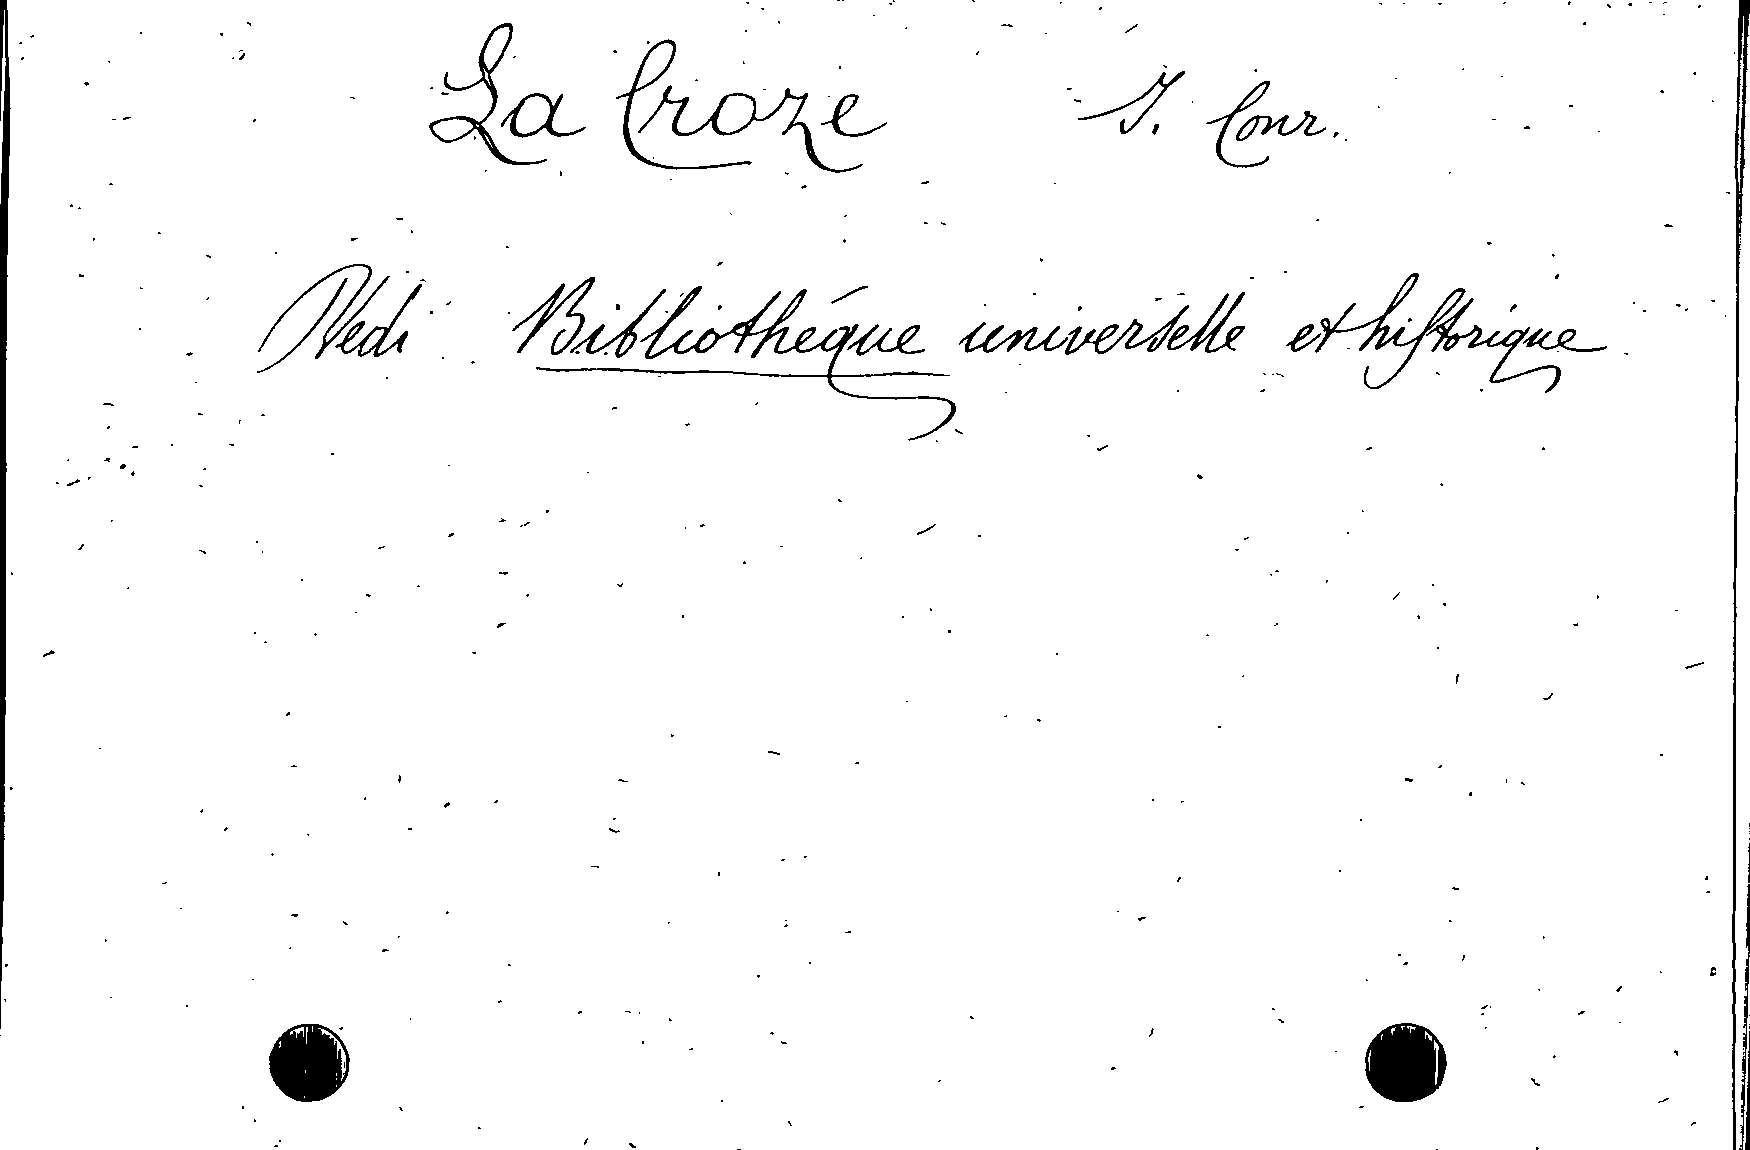 La Croze J. Conr.
Vedi Bibliothéque universelle et historique